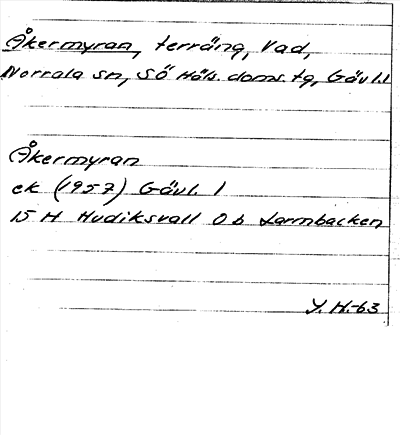 Åkermyran, terräng, Vad,
Norrala sn, Sö Häls. doms. tg, Gävl.l
Åkermyran
ek (1957) Gävl. l
15 H Hudiksvall 0 b Larmbacken
Y. H.-63